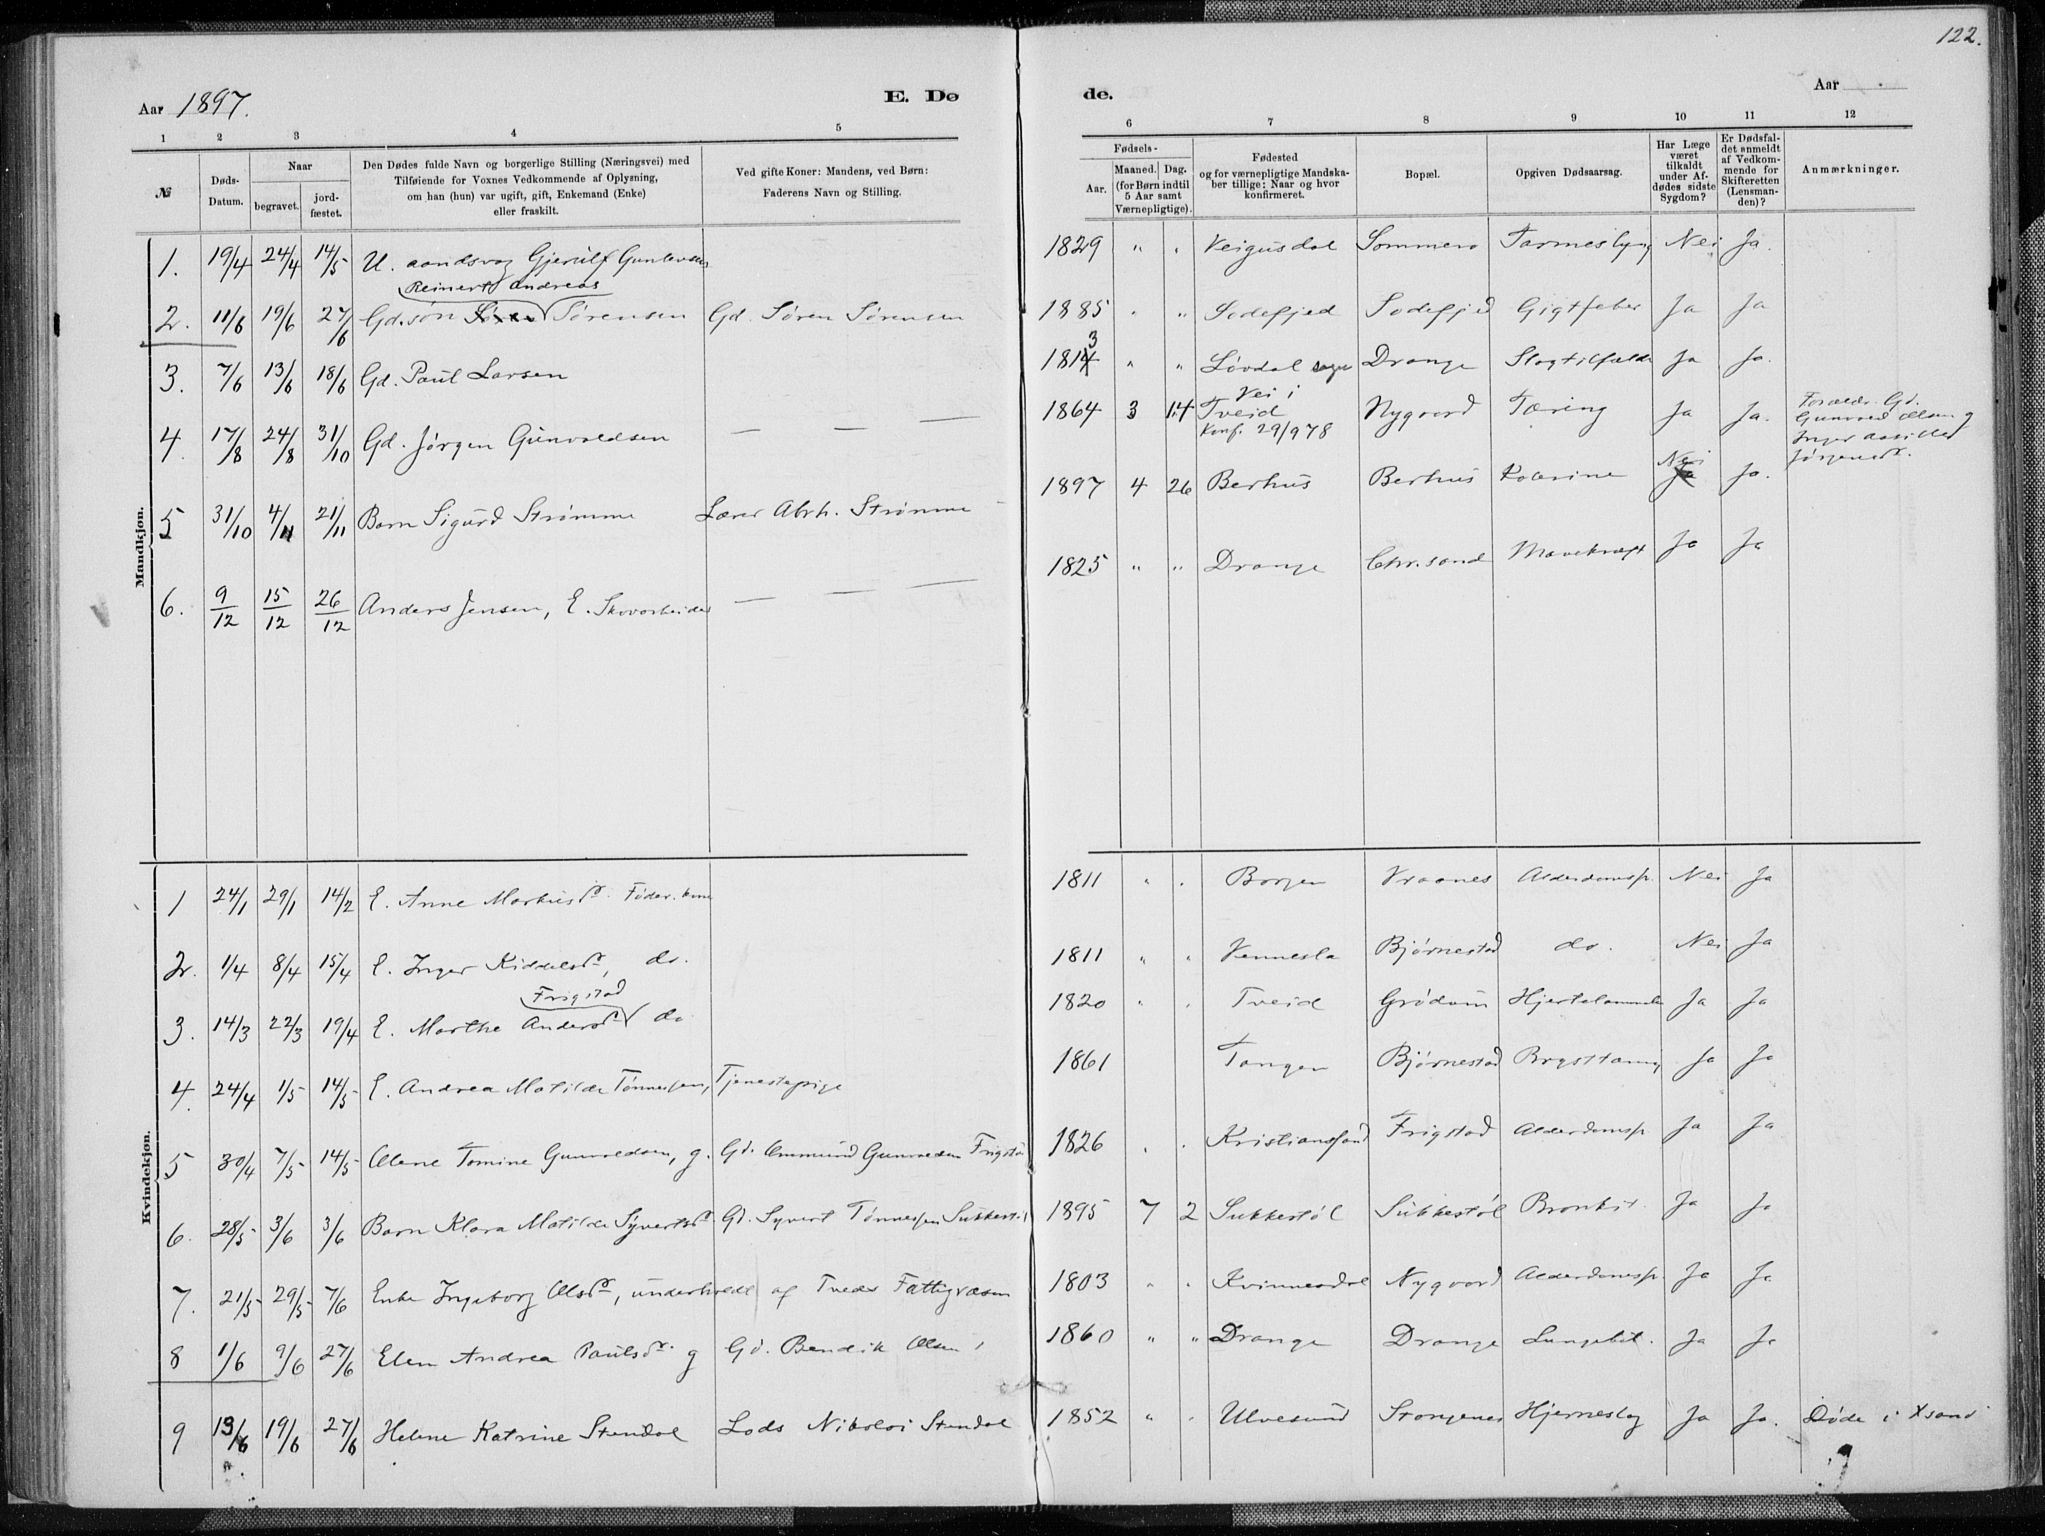 122.
Aar 1897.
E. Dø
de.
Aar
1 2 3 4 5
6 7 8 9 10 11 12
№
Døds-Datum.
Naar
begravet.
jord-fæstet.
Den Dødes fulde Navn og borgerlige Stilling (Næringsvei) med
Tilføiende for Voxnes Vedkommende af Oplysning,
om han (hun) var ugift, gift, Enkemand (Enke)
eller fraskilt.
Ved gifte Koner: Mandens, ved Børn:
Faderens Navn og Stilling.
Fødsels-
Aar.
Maaned. Dag.
(for Børn indtil
5 Aar samt
Værnepligtige).
Fødested
og for værnepligtige Mandska-
ber tillige: Naar og hvor
konfirmeret.
Bopæl.
Opgiven Dødsaarsag.
Har Læge
været
tilkaldt
under Af-
dødes sidste
Sygdom?
Er Dødsfal-
det anmeldt
af Vedkom-
mende for
Skifteretten
(Lensman-
den)?
Anmærkninger.
Mandkjøn.
1. 19/4 24/4 14/5 U. aandsvag Gjerulf Gunlevsen 1829 " " Veigusdal Sommero Tarmeslyng Nei Ja.
Reinert Andreas
2. 11/6 19/6 27/6 Gd.søn Søren Sørensen Gd. Søren Sørensen 1885 " " Sodefjed Sodefjed Gigtfeber Ja Ja
3
3. 7/6 13/6 18/6 Gd. Paul Larsen 1814 " " Løvdal Drange Slagtilfælde Ja Ja.
Vei i
4. 17/8 24/8 31/10 Gd. Jørgen Gunvaldsen — — — 1864 3 14 Tveid Nygaard Tæring Ja Ja. Forældr. Gd.
Konf. 29/9 78
Gunvald Olsen g
Inger
Jørgensdr.
5 31/10 4/11 21/11 Barn Sigurd Strømme Lærer Abrh. Strømme 1897 4 26 Berhus Berhus Kolerine Nei Ja Ja.
6. 9/12 15/12 26/12 Anders Jensen, E. Skovarbeider — — — 1825 " " Drange Chr.sand Mavekræft Ja Ja
Kvindekjøn.
1 24/1 29/1 14/2 E. Anne Markusdr. Føder.kone 1811 " " Borgen Vraanes Alderdomssv. Nei Ja
2. 1/4 8/4 15/4 E. Inger Kiddelsdr, do. 1811 " " Vennesla Bjørnestad do. Nei Ja
Frigstad
3. 14/3 22/3 19/4 E. Marthe Andersdr do. 1820 " " Tveid Grødum Ja Ja
4. 24/4 1/5 14/5 E. Andrea Matilde Tønnessen, Tjenestepige 1861 Tangen Bjørnestad Brysttæring Ja Ja
5 30/4 7/5 14/5 Olene Tomine Gunvaldsen, g. Gd. Ommund Gunvaldsen Frigstad 1826 " " Kristianssand Frigstad Alderdomssv Ja Ja
6. 28/5 3/6 3/6 Barn Klara Matilde Syvertsdr Gd. Syvert Tønnessen Sukkestøl 1895 7 2 Sukkestøl Sukkestøl Bronkit. Ja Ja
7. 21/5 29/5 7/6 Enke Ingeborg Olsdr, underholdt af Tveds Fattigvæsen 1803 " " Kvinnesdal Nygaard Alderdomssv. Ja Ja
8 1/6 9/6 27/6 Elen Andrea Paulsdr. g Gd. Bendik Olsen 1860 " " Drange Drange Lungebet. Ja Ja
9 13/6 19/6 27/6 Helene Katrine Stendal Lods Nikolai Stendal 1852 " " Ulvesund Stangenes Hjernesleg Ja Ja. Døde i Xsand